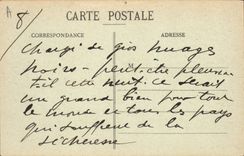 A
8
CARTE POSTALE
CORRESPONDANCE
ADRESSE
Chargé de gros nuages
noirs - peut-être pleuvra
t'il cette nuit. ce serait
un grand bien pour tout
le monde en tous les pays
qui souffrent de la
sécheresse